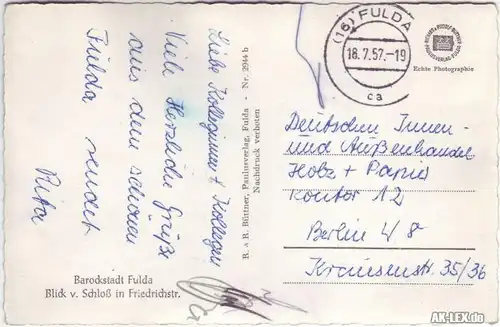 Liebe Kolleginnen + Kollegen
Viele Herzliche Grüße
aus dem schönen
Fulda sendet
Rita
Barockstadt Fulda
Blick v. Schloß in Friedrichstr.
R. & R. Büttner, Paulusverlag, Fulda - Nr. 2944 b
Nachdruck verboten
(16) FULDA
18.7.57.-19
ca
Echte Photographie
Deutschen Innen-
und Außenhandel
Holz + Papier
Kontor 12
Berlin W 8
Krausenstr. 35/36
AK-LEX.de